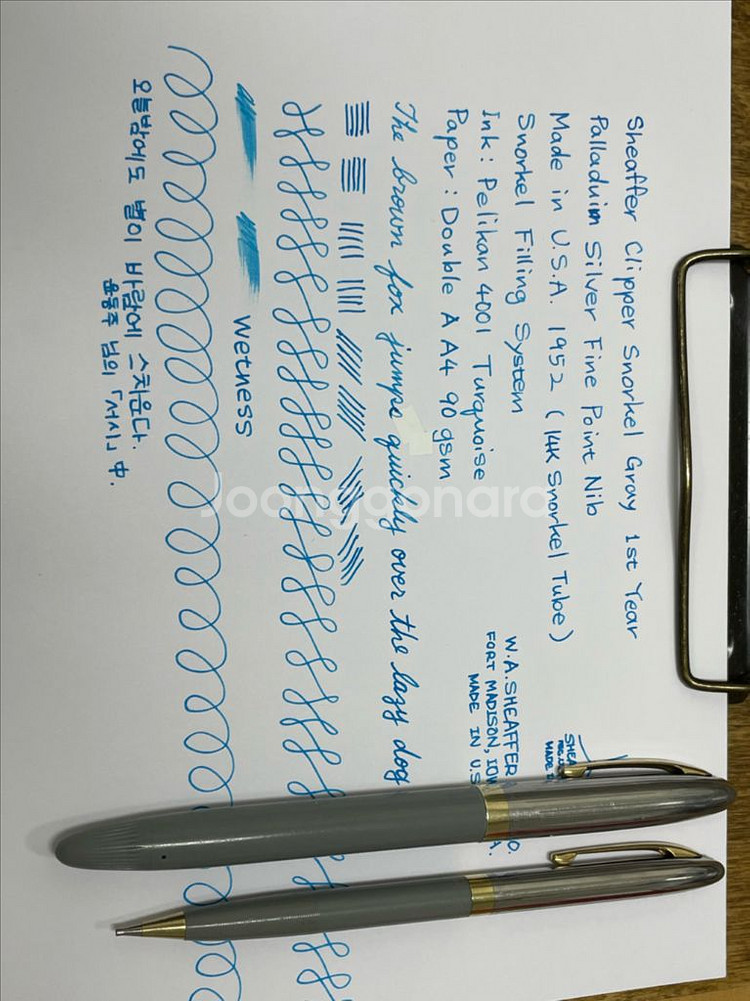 Sheaffer Clipper Snorkel Gray 1st Year
Palladuim Silver Fine Point Nib
Made in U.S.A. 1952 (14K Snorkel Tube)
Snorkel Filling System
Ink : Pelikan 4001 Turquoise
Paper : Double A A4 90 gsm
W.A.SHEAFFER
FORT MADISON, IOW
MADE IN U.S
A.
O.
SHEA
MADE I
The brown fox jumps quickly over the lazy dog
Wetness
오늘밤에도 별이 바람에 스치운다.
윤동주 님의 「서시」 中.
Joonggonara